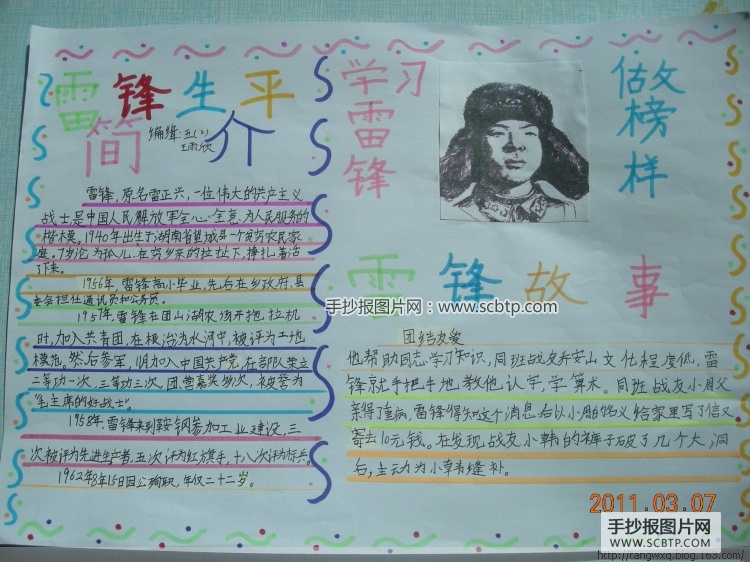 雷锋生平
简介
编缉:五(2)
王雨欣
雷锋,原名雷正兴,一位伟大的共产主义
战士是中国人民解放军全心全意为人民服务的
楷模。1940年出生于湖南省望城县一个贫穷农民家
庭。7岁沦为孤儿,在穷乡亲的拉扯下,挣扎着活
了下来。
1956年,雷锋高小毕业,先后在乡政府,县
委会担任通讯员和公务员。
1957年,雷锋在团山湖农场开拖拉机
时,加入共青团,在根治为水河中,被评为工地
模范。然后参军,加入中国共产党,在部队荣立
二等功一次,三等功三次,团营嘉奖多次,被誉为
"毛主席的好战士"。
1958年,雷锋来到鞍钢参加工业建设,三
次被评为先进生产者,五次评为红旗手,十八次评为标兵。
1962年8年15日因公殉职,年仅二十二岁。
学习
雷锋
做
榜
样
雷锋故事
团结友爱
他帮助同志学习知识,同班战友乔安山文化程度低,雷
锋就手把手地教他认字,学算术。同班战友小周父
亲得了重病,雷锋得知这个消息后以小周的名义给家里写了信又
寄去10元钱。在发现战友小韩的裤子破了几个大洞
后,主动为小韩缝补。
手抄报图片网:www.scbtp.com
2011.03.07
手抄报图片网
WWW.SCBTP.COM
http://tangwxq.blog.163.com/